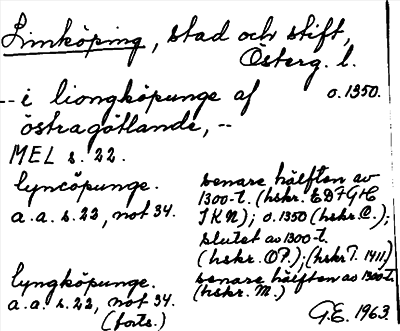 Linköping, stad och stift,
Österg. l.
-- i liongköpunge af o. 1350.
östragötlande, --
MEL s. 22.
lyncöpunge. senare hälften av
1300-t. (hskr. EDFGHC
a.a. s. 22, not 34. IKN); o. 1350 (hskr. C.);
slutet av 1300-t.
(hskr. OP.); (hskr T. 1411)
lyngköpunge. senare hälften av 1300-t.
a.a. s. 22, not 34. (hskr. M.)
(forts.) G.E. 1963.